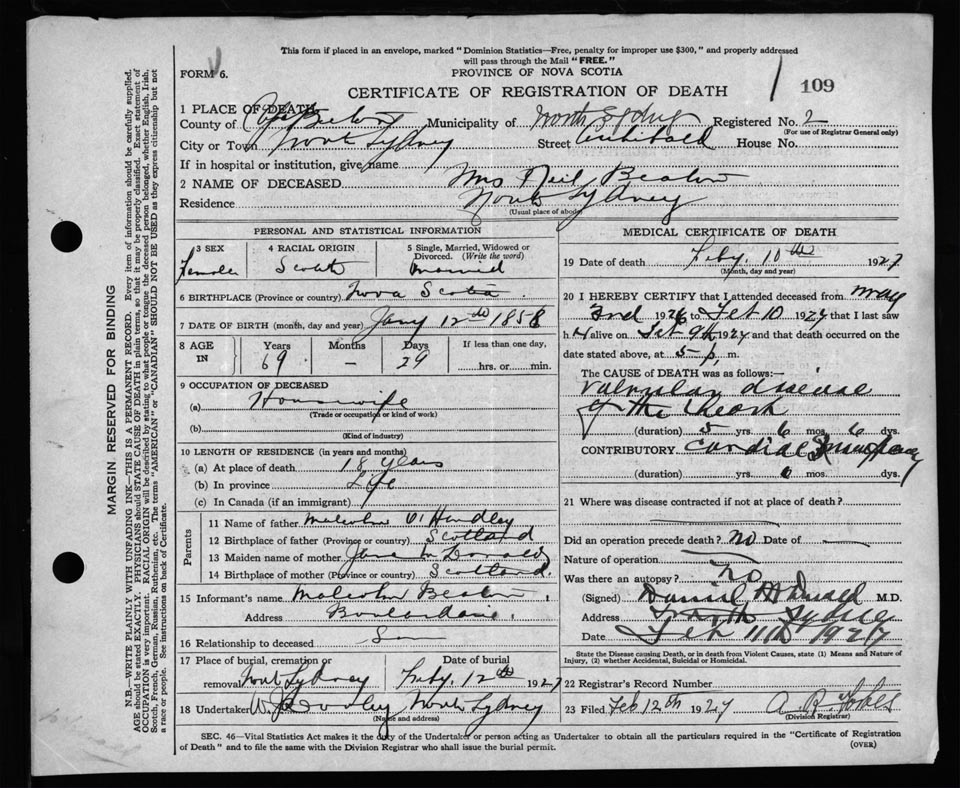 This form if placed in an envelope, marked "Dominion Statistics—Free, penalty for improper use $300," and properly addressed
will pass through the Mail "FREE."
FORM 6.
PROVINCE OF NOVA SCOTIA
109
CERTIFICATE OF REGISTRATION OF DEATH
1 PLACE OF DEATH
County of Cape Breton Municipality of North Sydney Registered No. 2
(For use of Registrar General only)
City or Town North Sydney Street Archibald House No.
If in hospital or institution, give name
2 NAME OF DECEASED Mrs Neil Beaton
Residence North Sydney
(Usual place of abode)
PERSONAL AND STATISTICAL INFORMATION
3 SEX 4 RACIAL ORIGIN 5 Single, Married, Widowed or Divorced. (Write the word)
Female Scotch Married
6 BIRTHPLACE (Province or country) Nova Scotia
7 DATE OF BIRTH (month, day and year) Jany 12th 1858
8 AGE IN Years Months Days If less than one day,
69 — 29 hrs. or min.
9 OCCUPATION OF DECEASED
(a) Housewife
(Trade or occupation or kind of work)
(b)
(Kind of industry)
10 LENGTH OF RESIDENCE (in years and months)
(a) At place of death 18 years
(b) In province Life
(c) In Canada (if an immigrant)
Parents
11 Name of father Malcolm
12 Birthplace of father (Province or country) Scotland
13 Maiden name of mother Jane McDonald
14 Birthplace of mother (Province or country) Scotland.
15 Informant's name Malcolm Beaton
Address Boulardarie
16 Relationship to deceased Son
17 Place of burial, cremation or removal Date of burial
North Sydney Feby. 12th 1927
18 Undertaker North Sydney
(Name and address)
MEDICAL CERTIFICATE OF DEATH
19 Date of death Feby. 10th 1927
(Month, day and year)
20 I HEREBY CERTIFY that I attended deceased from May
3rd 1926 to Feb 10 1927 that I last saw
h alive on Feb 9th 1927 and that death occurred on the
date stated above, at 5 p. m.
The CAUSE of DEATH was as follows:—
Valvular disease
of the heart
(duration) 5 yrs. 6 mos. 6 dys.
CONTRIBUTORY Cardiac
(duration) yrs. 6 mos. dys.
21 Where was disease contracted if not at place of death?
Did an operation precede death? No Date of —
Nature of operation
Was there an autopsy? no
(Signed) Daniel McDonald M.D.
Address North Sydney
Date Feb 11th 1927
State the Disease causing Death, or in death from Violent Causes, state (1) Means and Nature of
Injury, (2) whether Accidental, Suicidal or Homicidal.
22 Registrar's Record Number
23 Filed Feb 12th 1927 A. R. Forbes
(Division Registrar)
SEC. 46—Vital Statistics Act makes it the duty of the Undertaker or person acting as Undertaker to obtain all the particulars required in the "Certificate of Registration
of Death" and to file the same with the Division Registrar who shall issue the burial permit.
(OVER)
MARGIN RESERVED FOR BINDING
N.B.—WRITE PLAINLY, WITH UNFADING INK—THIS IS A PERMANENT RECORD. Every item of information should be carefully supplied.
AGE should be stated EXACTLY. PHYSICIANS should STATE CAUSE OF DEATH in plain terms, so that it may be properly classified. Exact statement of
OCCUPATION is very important. RACIAL ORIGIN will be described by stating to what people or tongue the deceased person belonged, whether English, Irish,
Scotch, French, German, Russian, Ruthenian, etc. The terms "AMERICAN" or "CANADIAN" SHOULD NOT BE USED as they express citizenship but not
a race or people. See instructions on back of Certificate.